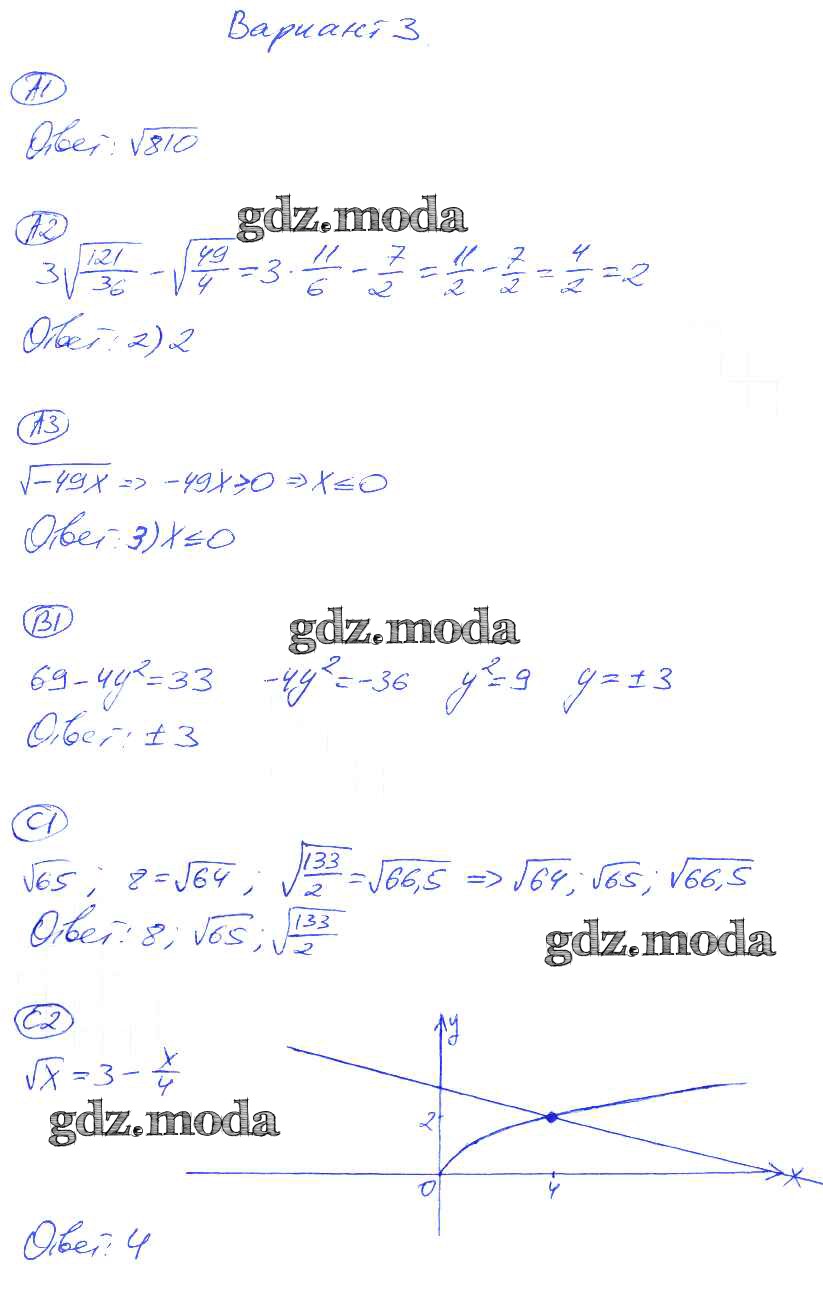 Вариант 3
А1
Ответ: √810
gdz.moda
А2
3√(121/36) - √(49/4) = 3 · 11/6 - 7/2 = 11/2 - 7/2 = 4/2 = 2
Ответ: 2) 2
А3
√(-49x) => -49x ≥ 0 => x ≤ 0
Ответ: 3) x ≤ 0
В1
gdz.moda
69 - 4y² = 33 -4y² = -36 y² = 9 y = ± 3
Ответ: ± 3
С1
√65 ; 8 = √64 ; √(133/2) = √66,5 => √64 ; √65 ; √66,5
Ответ: 8 ; √65 ; √(133/2)
gdz.moda
С2
y
√x = 3 - x/4
gdz.moda
2
x
0 4
Ответ: 4